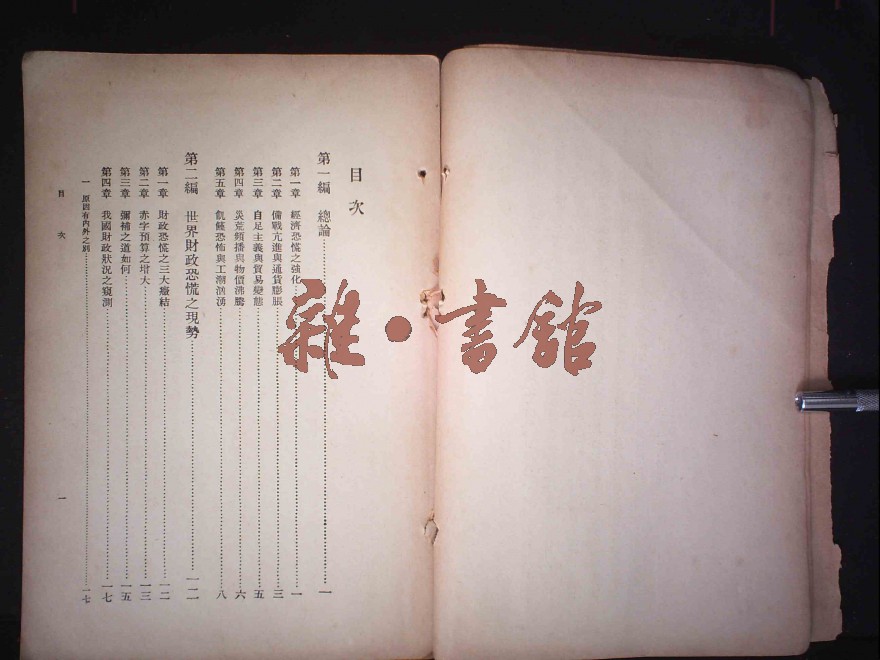 目次
第一編　總論……一
第一章　經濟恐慌之強化……一
第二章　備戰亢進與通貨膨脹……三
第三章　自足主義與貿易變態……五
第四章　災荒頻播與物價沸騰……六
第五章　飢饉恐怖與工潮洶湧……八
第二編　世界財政恐慌之現勢……一二
第一章　財政恐慌之三大癥結……一二
第二章　赤字預算之增大……一三
第三章　彌補之道如何……一五
第四章　我國財政狀況之窺測……一七
一　原因有內外之別……一七
目次　一
雜·書館